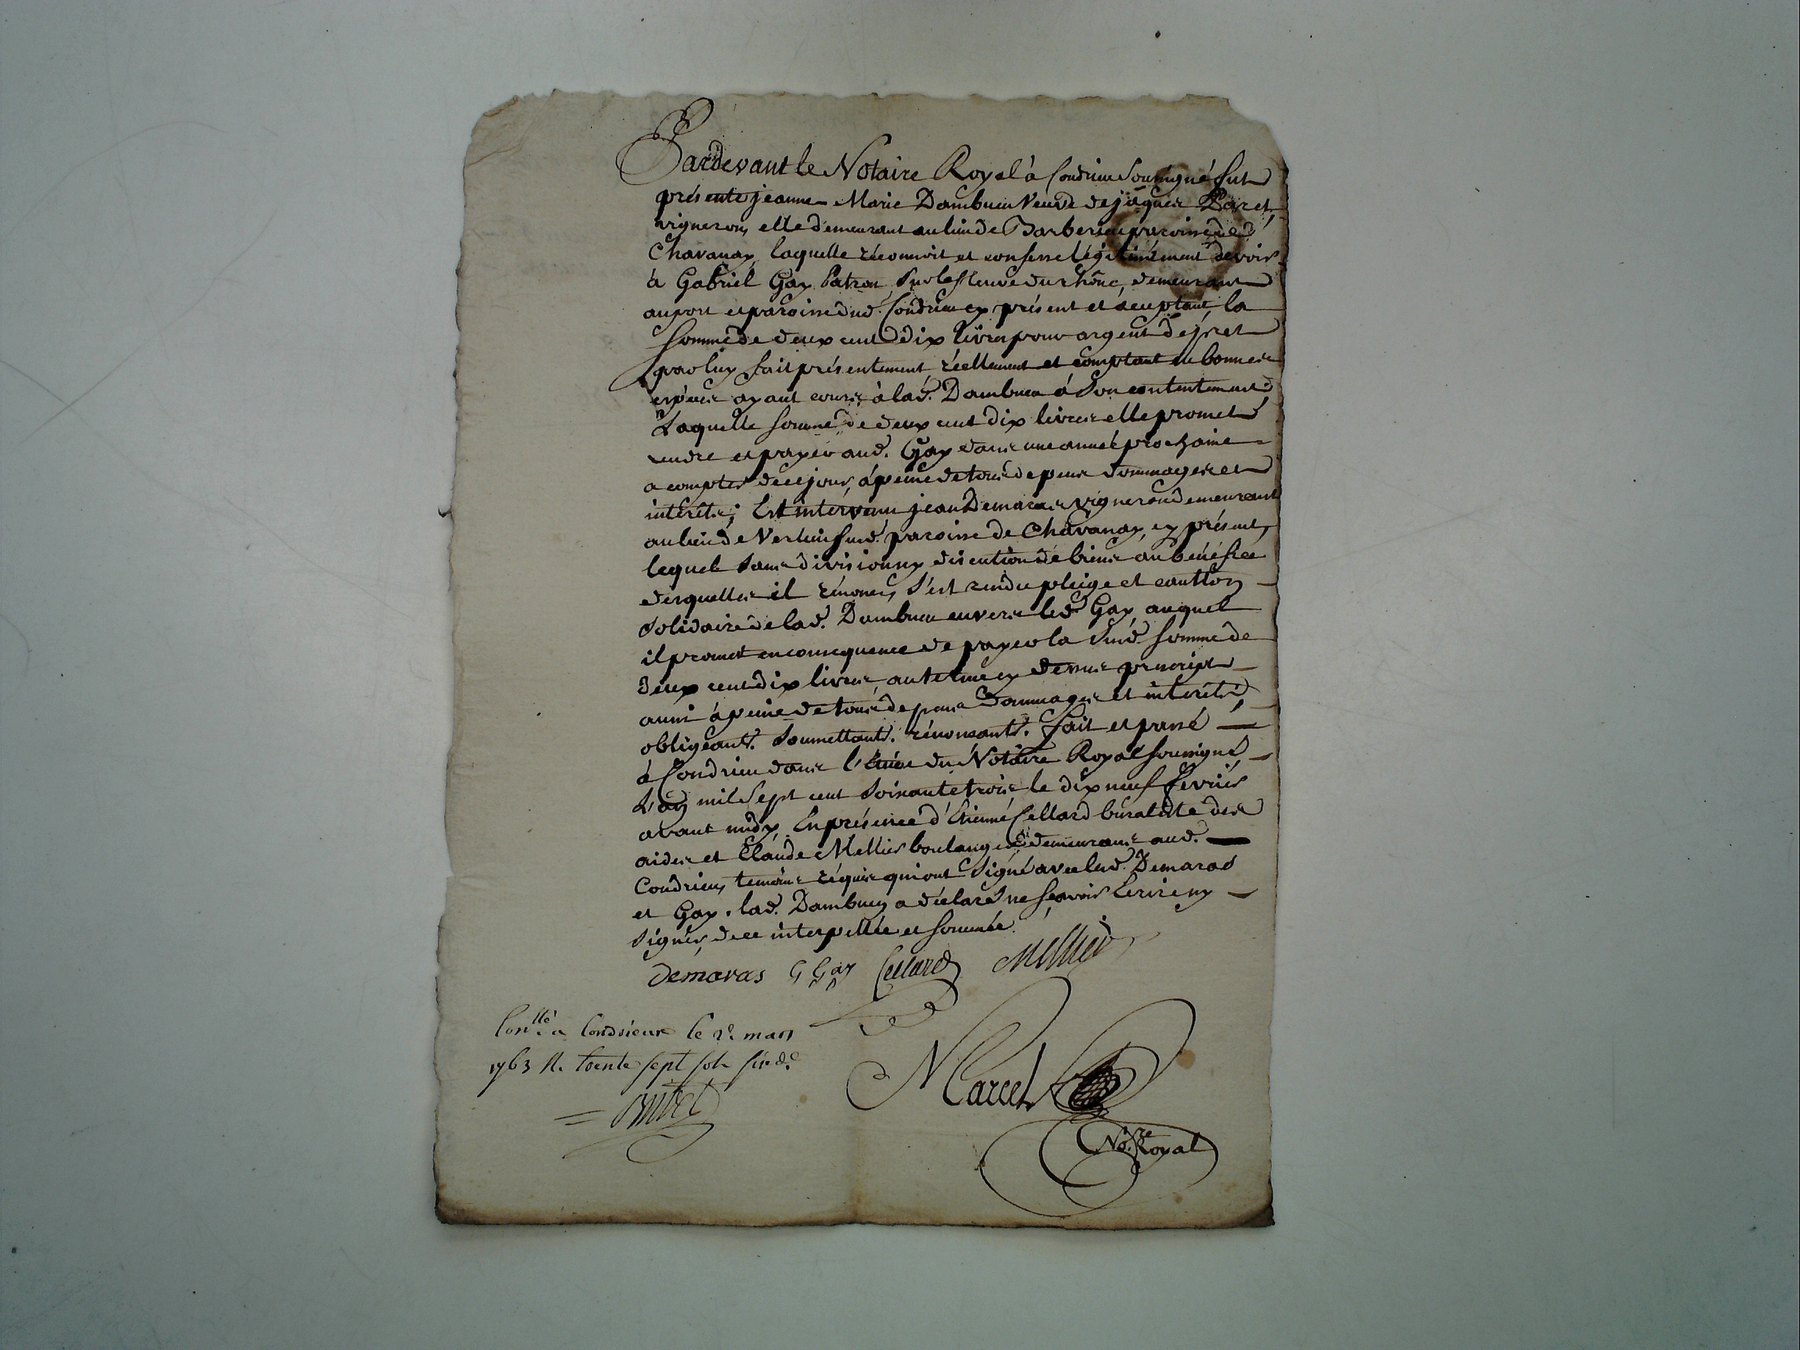 Pardevant le Notaire Royal à Condrieu Soussigné fut
présente jeanne Marie Dambuen Veuve de jaques Paret,
vigneron, elle demeurant au lieu de Barberin paroisse de
Chavanay, laquelle réconnoit et confesse légitimément devoir
à Gabriel Gay Patron sur le fleuve du rhône, demeurant
au port et paroisse dud. Condrieu cy présent et acceptant, la
somme de deux cent dix livres pour argent de pret
par luy fait présentement, réellement et comptant en bonnes
espéces ayant cours à lad. Dambuen à son contentement,
Laquelle somme de deux cent dix livres elle promet
rendre et payer aud. Gay dans une année prochaine
a compter de ce jour, à peine de tous depens dommages et
intérêts; Est intervenu jean Demaras vigneron demeurant
au lieu de Verlieu sud. paroisse de Chavanay, cy présent,
lequel sans division ny discution de biens au bénéfice
desquelles il rénonce, s'est rendu pleige et caution
solidaire de lad. Dambuen envers led. Gay, auquel
il promet en consequence de payer la susd. somme de
deux cent dix livres, au terme cy dessus prescript
aussi à peine de tous depens dommages et intérêts,
obligeants. soumettants. rénonçants. fait et passé
à Condrieu dans l'étude du Notaire Royal soussigné
L'an mil sept cent soixante trois le dix neuf février
avant midy, En présence d'Etienne Cellard buraliste des
aides et Claude Mellier boulanger demeurans aud.
Condrieu, temoins réquis qui ont signé avec led. Demaras
et Gay. lad. Dambuen a déclaré ne sçavoir Ecrire ny
signer, de ce interpellée et sommée.
demaras G Gay Cellard Mellier
Con.llé a Condrieux le 2e mars
1763 R. trente sept sols six d.
Marcel
No.re Royal